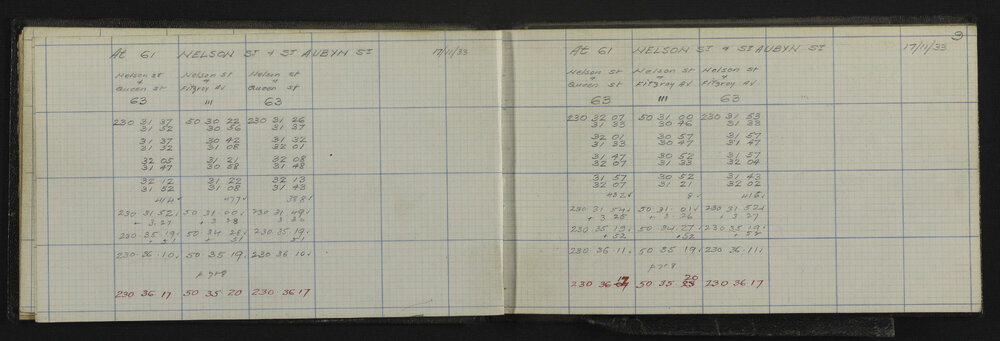 At 61 NELSON ST & ST AUBYN ST 17/11/33
Nelson St Nelson St Nelson St
& & &
Queen St Fitzroy Av Queen St
63 111 63
230 31 37 50 30 22 230 31 26
31 52 30 56 31 37
31 37 30 42 31 32
31 32 31 08 32 01
32 05 31 21 32 08
31 47 30 58 31 48
32 12 31 22 32 13
31 52 31 08 31 43
414✓ 477✓ 388✓
230 31 52✓ 50 31 00✓ 230 31 49✓
+ 3.27 + 3 28 3 30
230 35 19✓ 50 34 28✓ 230 35 19✓
+ 51 + 51 51
230 36 10✓ 50 35 19✓ 230 36 10✓
230 36 17 50 35 20 230 36 17
9
At 61 NELSON ST & ST AUBYN ST 17/11/33
Nelson St Nelson St Nelson St
& & &
Queen St Fitzroy Av Fitzroy Av
63 111 63
230 32 07 50 31 00 230 31 53
31 33 30 46 31 33
32 01 30 57 31 57
31 33 30 47 31 47
31 47 30 52 31 57
32 07 31 33 32 04
31 57 30 52 31 43
32 07 31 21 32 02
432✓ 8✓ 416✓
230 31 54✓ 50 31 01✓ 230 31 52✓
+ 3 25 + 3 26 + 3 27
230 35 19✓ 50 34 27 230 35 19✓
+52 +52 + 52
230 36 11✓ 50 35 19✓ 230 36 11✓
17 20
230 36 50 35 23 230 36 17